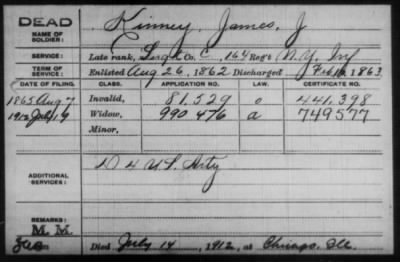 DEAD
NAME OF SOLDIER: Kinney, James, J
SERVICE: Late rank, Sergt Co. C, 164 Reg't N.Y. Inf
TERM OF SERVICE: Enlisted Aug 26, 1862 Discharged Feb 16, 1863
DATE OF FILING. CLASS. APPLICATION NO. LAW. CERTIFICATE NO.
1865 Aug 7 Invalid, 81.529 o 441.398
1912 July 19 Widow, 990 476 a 749577
Minor,
ADDITIONAL SERVICES: D 4 U.S. Arty
REMARKS:
M. M.
Died July 14, 1912, at Chicago, Ill.